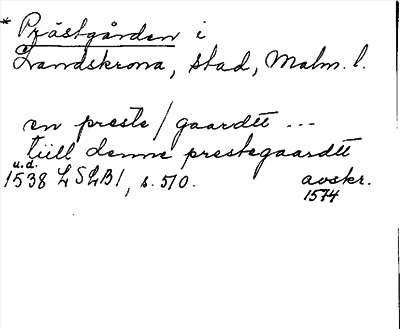 * Prästgården i
Landskrona, stad, Malm. l.
en preste/gaardtt ...
tiill denne prestegaardtt
u.d.
1538 LSLB1, s. 510. avskr.
1574